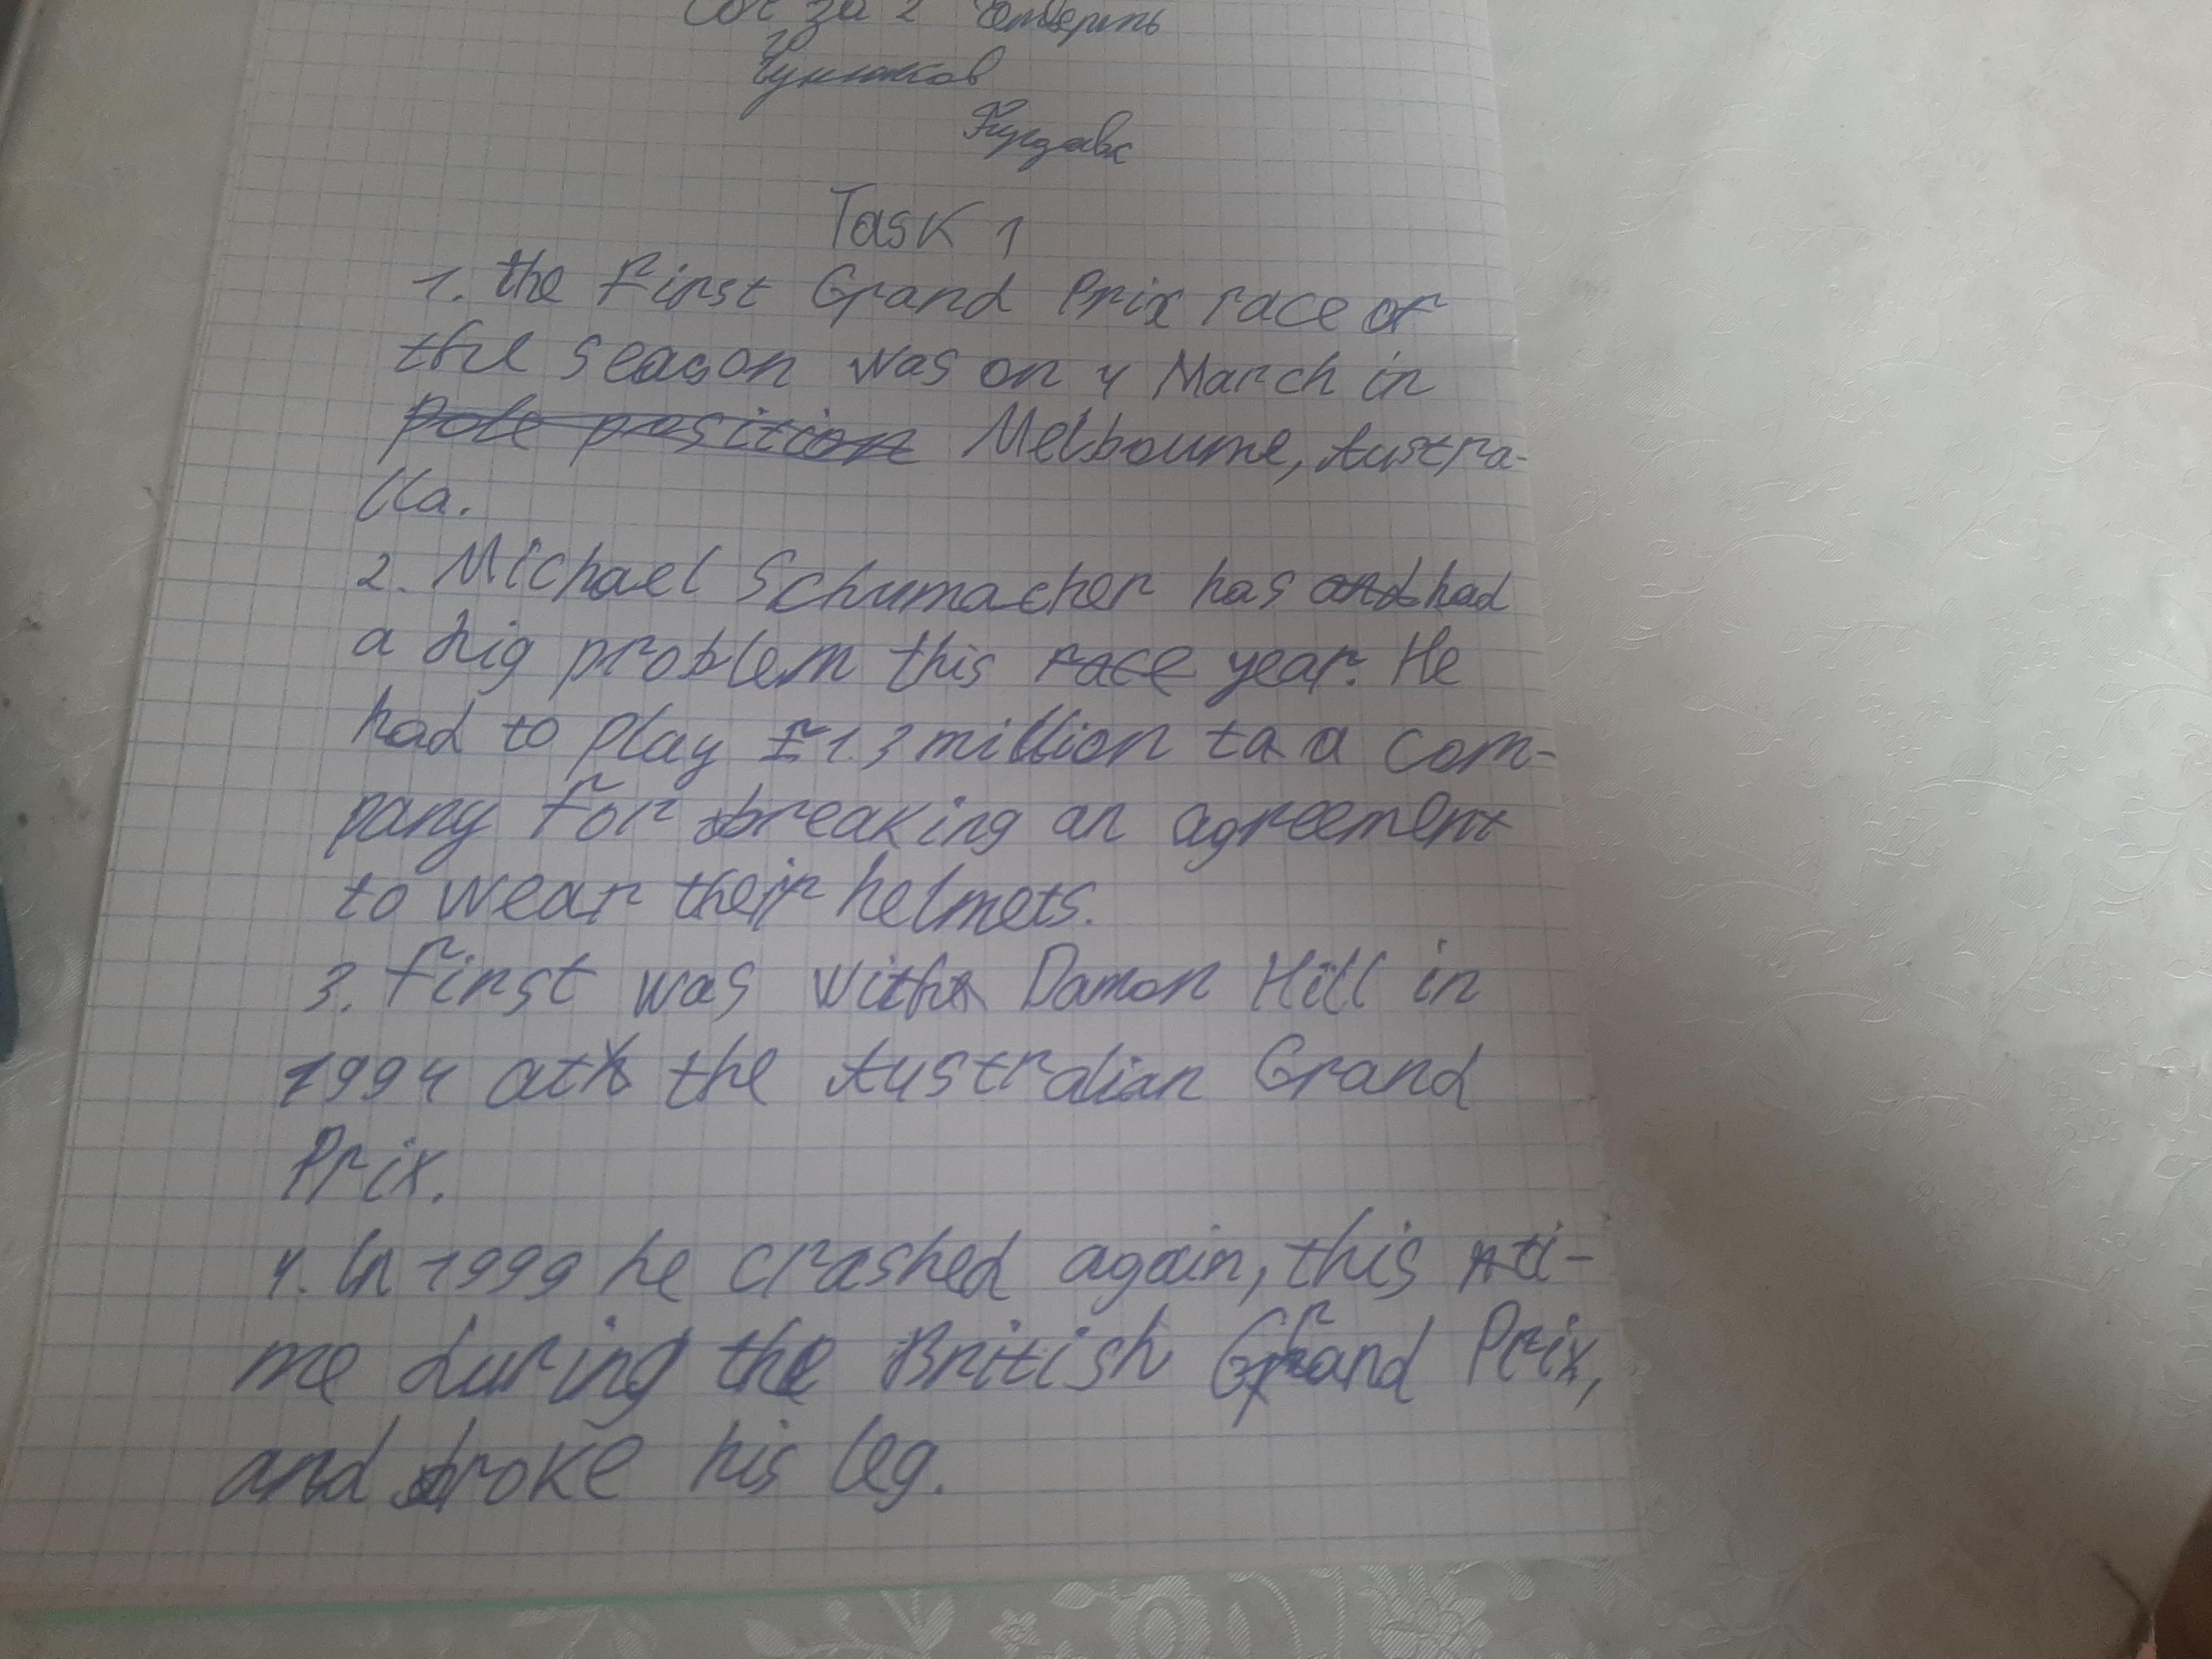 Соч за 2 четверть
Task 1
1. the First Grand Prix race of
the season was on 4 March in
pole position Melbourne, Austra-
lia.
2. Michael Schumacher has and had
a big problem this race year. He
had to play £1.3 million to a com-
pany for breaking an agreement
to wear their helmets.
3. First was with Damon Hill in
1994 at the Australian Grand
Prix.
4. In 1999 he crashed again, this ti-
me during the British Grand Prix,
and broke his leg.